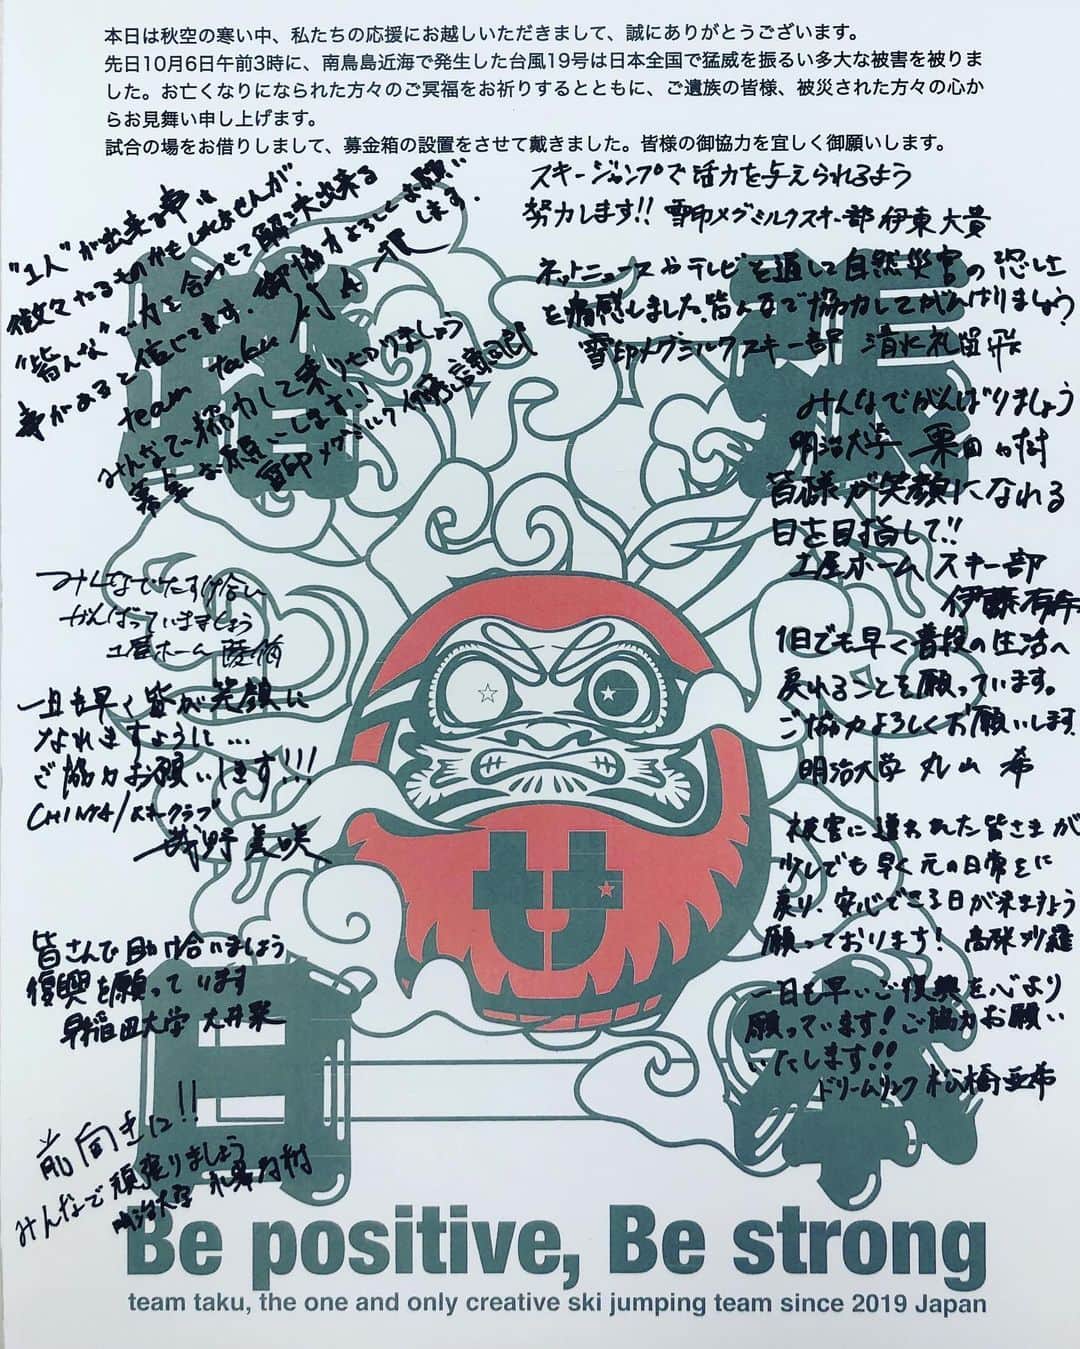 本日は秋空の寒い中、私たちの応援にお越しいただきまして、誠にありがとうございます。
先日10月6日午前3時に、南鳥島近海で発生した台風19号は日本全国で猛威を振るい多大な被害を被りま
した。お亡くなりになられた方々のご冥福をお祈りするとともに、ご遺族の皆様、被災された方々の心か
らお見舞い申し上げます。
試合の場をお借りしまして、募金箱の設置をさせて戴きました。皆様の御協力を宜しく御願いします。
"1人"が出来る事は
微々たるものかもしれませんが、
"皆んな"で力を合わせて解決出来る
事があると信じてます。御協力よろしくお願い
します。
team taku
みんなで協力して乗りきりましょう
募金お願いします!!
雪印メグミルク 伊藤謙司郎
スキージャンプで活力を与えられるよう
努力します!! 雪印メグミルクスキー部 伊東大貴
ネットニュースやテレビを通して自然災害の恐しさ
を痛感しました。皆んなで協力してがんばりましょう
雪印メグミルクスキー部 清水礼留飛
みんなでがんばりましょう
明治大学 栗田力樹
皆様が笑顔になれる
日を目指して!!
土屋ホームスキー部
伊藤有希
1日でも早く普段の生活へ
戻れることを願っています。
ご協力よろしくお願いします。
明治大学 丸山 希
被害に遭われた皆さまが
少しでも早く元の日常をに
戻り、安心できる日が来ますよう
願っております! 高梨沙羅
一日も早いご復興を心より
願っています!ご協力お願い
いたします!!
ドリームリンク 松橋亜希
みんなでたすけ合い
がんばっていきましょう
土屋ホーム
一日も早く皆が笑顔に
なれますように…
ご協力お願いします!!!
CHINTAIスキークラブ
茂野美咲
皆さんで助け合いましょう
復興を願っています
早稲田大学 大井栞
前向きに!!
みんなで頑張りましょう
明治大学
日本
Be positive, Be strong
team taku, the one and only creative ski jumping team since 2019 Japan